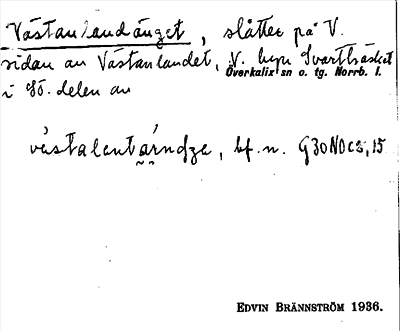 Västanlandänget, slåtter på V.
sidan av Västanlandet, V. byn Svartbäcket
Överkalix sn o. tg. Norrb. l.
i SÖ. delen av
västalantärndze, bf. n. G30NOc5,15
EDVIN BRÄNNSTRÖM 1936.